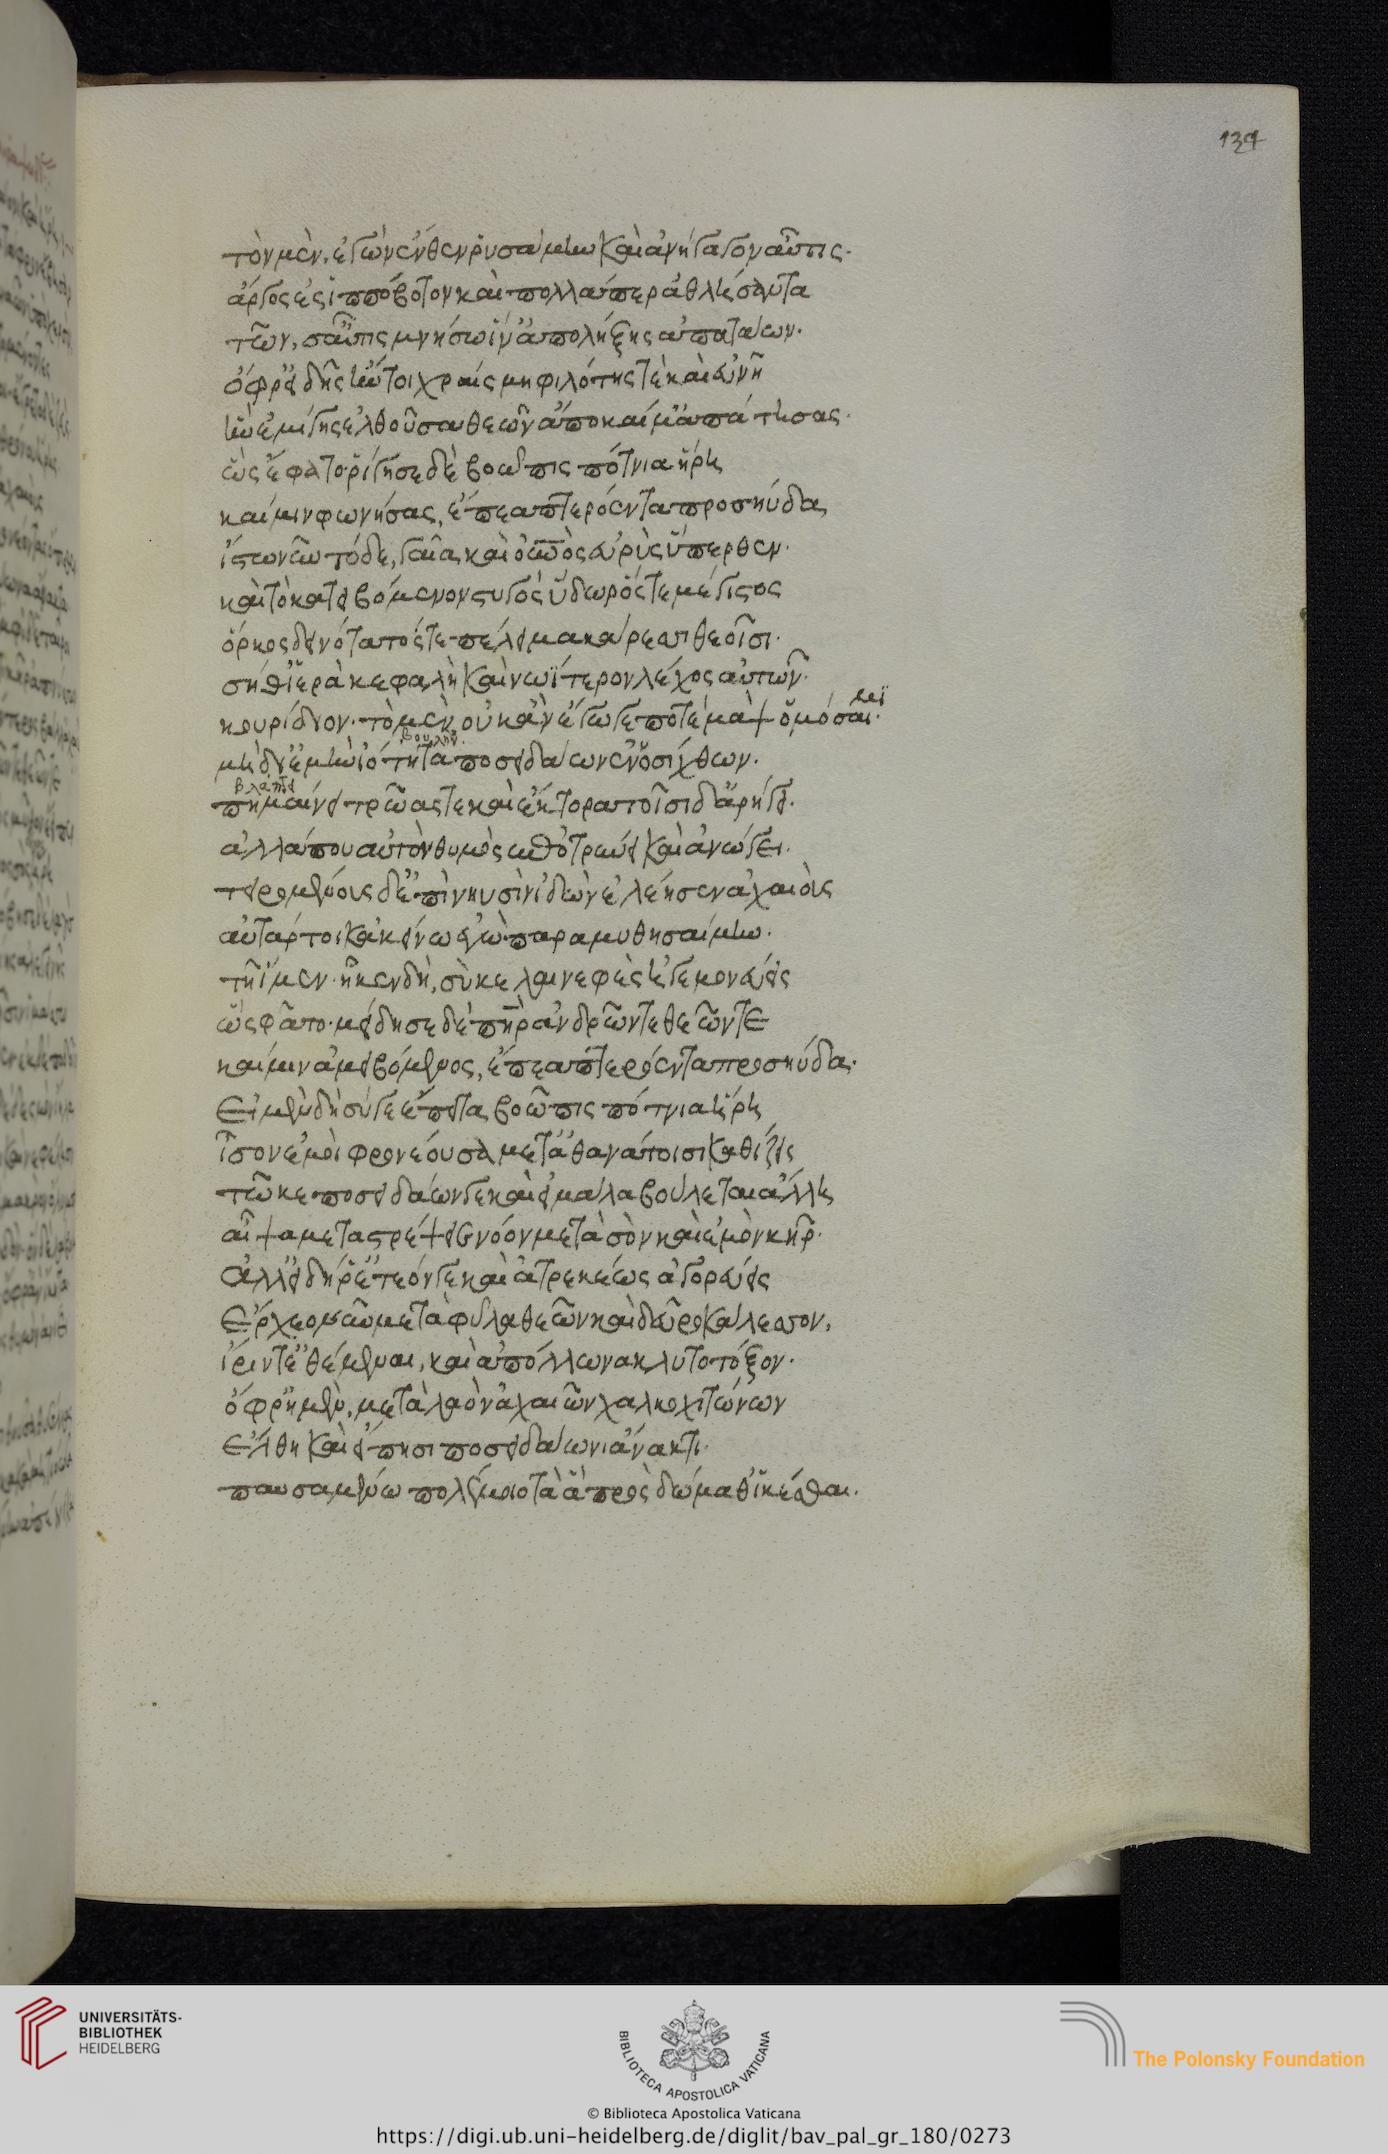 134
τὸν μὲν, ἐγὼν ἔνθεν ῥυσάμην καὶ ἀνήγαγον αὖτις.
ἄργος ἐς ἱππόβοτον καὶ πολλά περ ἀθλήσαντα
τῶν, σ' αὖτις μνήσω ἵν' ἀπολήξης ἀπατάων.
ὄφρ' ἴδης ἤν τοι χραίσμη φιλότης τὲ καὶ εὐνὴ
ἣν ἐμίγης ἐλθοῦσα θεῶν ἄπο καί μ' ἀπάτησας.
ὣς ἔφατο ῥίγησε δὲ βοῶπις πότνια ἥρη
καί μιν φωνήσας, ἔπεα πτερόεντα προσηύδα
ἴστω νῦν τόδε, γαῖα καὶ οὐρανὸς εὐρὺς ὕπερθεν.
καὶ τὸ κατειβόμενον στυγὸς ὕδωρ ὅς τε μέγιστος
ὅρκος δεινότατός τε πέλει μακάρεσσι θεοῖσι.
σή θ' ἱερὰ κεφαλὴ καὶ νωΐτερον λέχος αὐτῶν.
κουρίδιον. τὸ μὲν οὐκ ἂν ἐγώ γε ποτὲ μὰψ ὀμόσαιμι.
βουλὴν.
μὴ δι' ἐμὴν ἰότητα ποσειδάων ἐνοσίχθων.
βλάπτει
πημαίνει τρῶας τε καὶ ἕκτορα τοῖσι δ' ἀρήγει.
ἀλλά που αὐτὸν θυμὸς ἐποτρύνει καὶ ἀνώγει.
τειρομένους δ' ἐπὶ νηυσὶν ἰδὼν ἐλέησεν ἀχαιοὺς
αὐτάρ τοι κἀκείνω ἐγὼ παραμυθησαίμην.
τῆ ἴμεν. ἧ κεν δὴ, σὺ κελαινεφὲς ἡγεμονεύεις
ὣς φάτο. μείδησε δὲ πατὴρ ἀνδρῶν τε θεῶν τε
καί μιν ἀμειβόμενος, ἔπεα πτερόεντα προσηύδα.
Εἰ μὲν δὴ σύ γε ἔπειτα βοῶπις πότνια ἥρη
ἶσον ἐμοὶ φρονέουσα μετ' ἀθανάτοισι καθίζεις
τῶ κε ποσειδάων γε καὶ εἰ μάλα βούλεται ἄλλη
αἶψα μεταστρέψειε νόον μετὰ σὸν καὶ ἐμὸν κῆρ.
ἀλλ' εἰ δή ῥ' ἐτεόν γε καὶ ἀτρεκέως ἀγορεύεις
Ἔρχεο νῦν μετὰ φῦλα θεῶν καὶ δεῦρο κάλεσσον,
ἶριν τ' ἐλθέμεναι, καὶ ἀπόλλωνα κλυτοτόξον.
ὄφρ' ἡ μὲν, μετὰ λαὸν ἀχαιῶν χαλκοχιτώνων
Ἔλθη καὶ εἴπησι ποσειδάωνι ἄνακτι.
παυσαμένω πολέμοιο τὰ ἃ πρὸς δώμαθ' ἱκέσθαι.
UNIVERSITÄTS-
BIBLIOTHEK
HEIDELBERG
BIBLIOTECA APOSTOLICA VATICANA
The Polonsky Foundation
© Biblioteca Apostolica Vaticana
https://digi.ub.uni-heidelberg.de/diglit/bav_pal_gr_180/0273